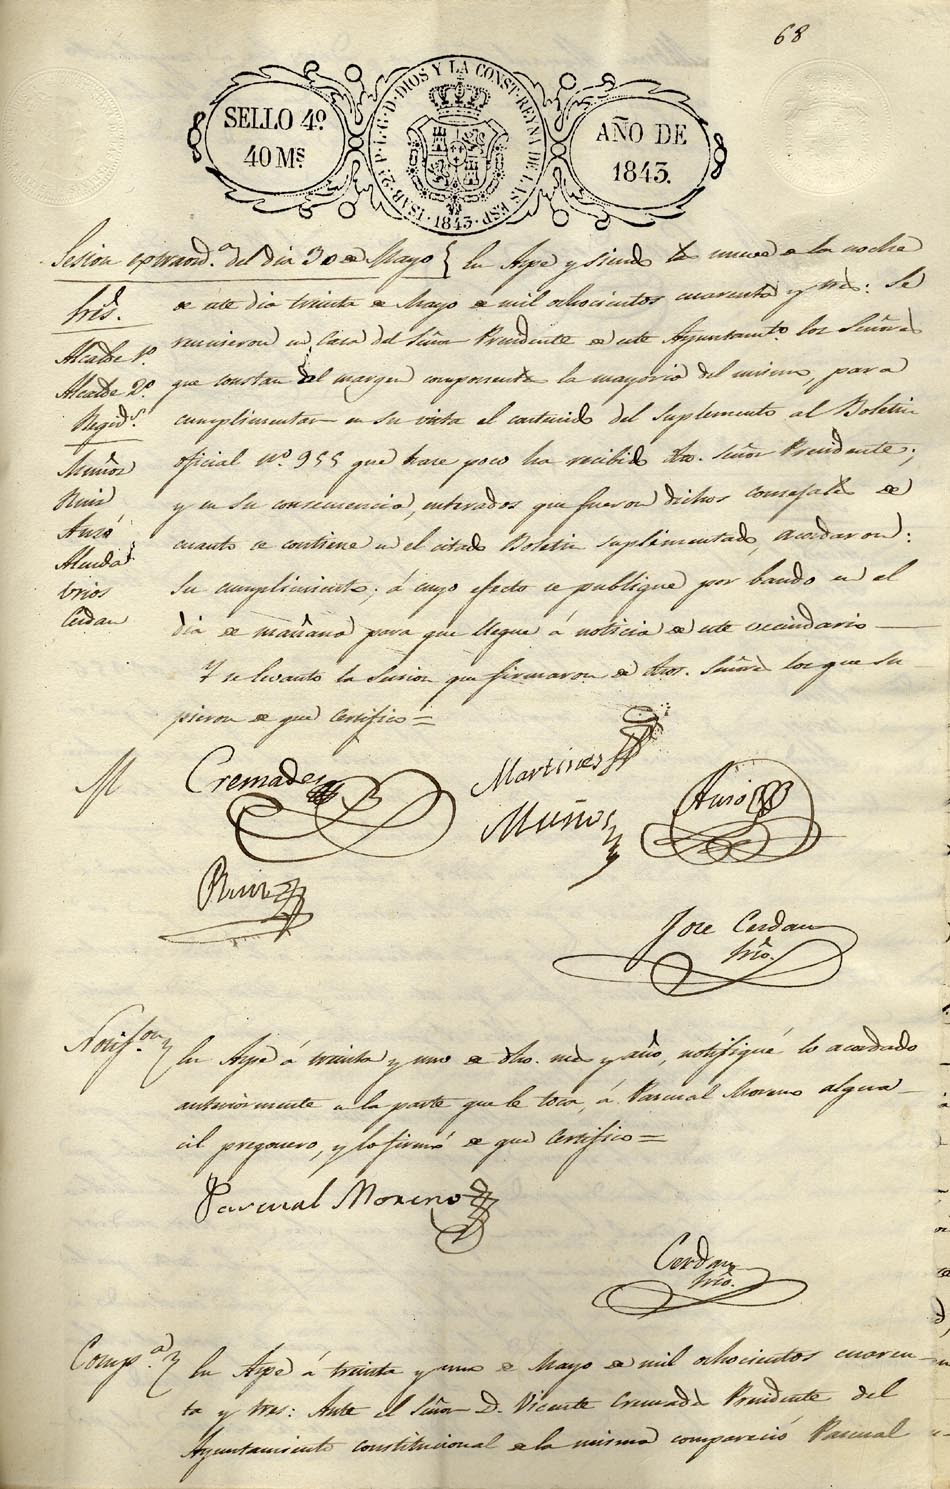 68
SELLO 4º
40 Ms
ISAB. 2ª P. L. G. D. DIOS Y LA CONST. REYNA DE LAS ESP. 1843.
AÑO DE
1843.
Sesion extraord.ª del dia 30 de Mayo
En Aspe y siendo las nueve de la noche
de este dia treinta de Mayo de mil ochocientos cuarenta y tres: Se
reunieron en Casa del Señor Presidente de este Ayuntamt.º los Señores
que constan del margen componentes la mayoria del mismo, para
cumplimentar en su vista el contenido del Suplemento al Boletin
oficial nº 955 que hace poco ha recibido dho. Señor Presidente;
y en su consecuencia, enterados que fueron dichos concejales de
cuanto se contiene en el citado Boletin suplimentado, acordaron:
Su cumplimiento; á cuyo efecto se publique por bando en el
dia de mañana para que llegue á noticia de este vecindario
Y se levanto la Sesion que firmaron de dhos. Señores los que su
pieron de que Certifico =
Sres.
Alcalde 1º.
Alcalde 2º.
Regid.s
Muñoz
Ruiz
Auzó
Almoda
brios
Cerdan
Cremades
Martines
Muños
Auzó
Ruiz
Jose Cerdan
Srio.
Notif.on
En Aspe á treinta y uno de dho. mes y año, notifiqué lo acordado
anteriormente en la parte que le toca, á Pascual Moreno algua
cil pregonero, y lo firmó de que Certifico =
Pascual Moreno
Cerdan
Srio.
Comp.ª
En Aspe á treinta y uno de Mayo de mil ochocientos cuaren
ta y tres: Ante el Señor D. Vicente Cremades Presidente del
Ayuntamiento constitucional de la misma compareció Pascual